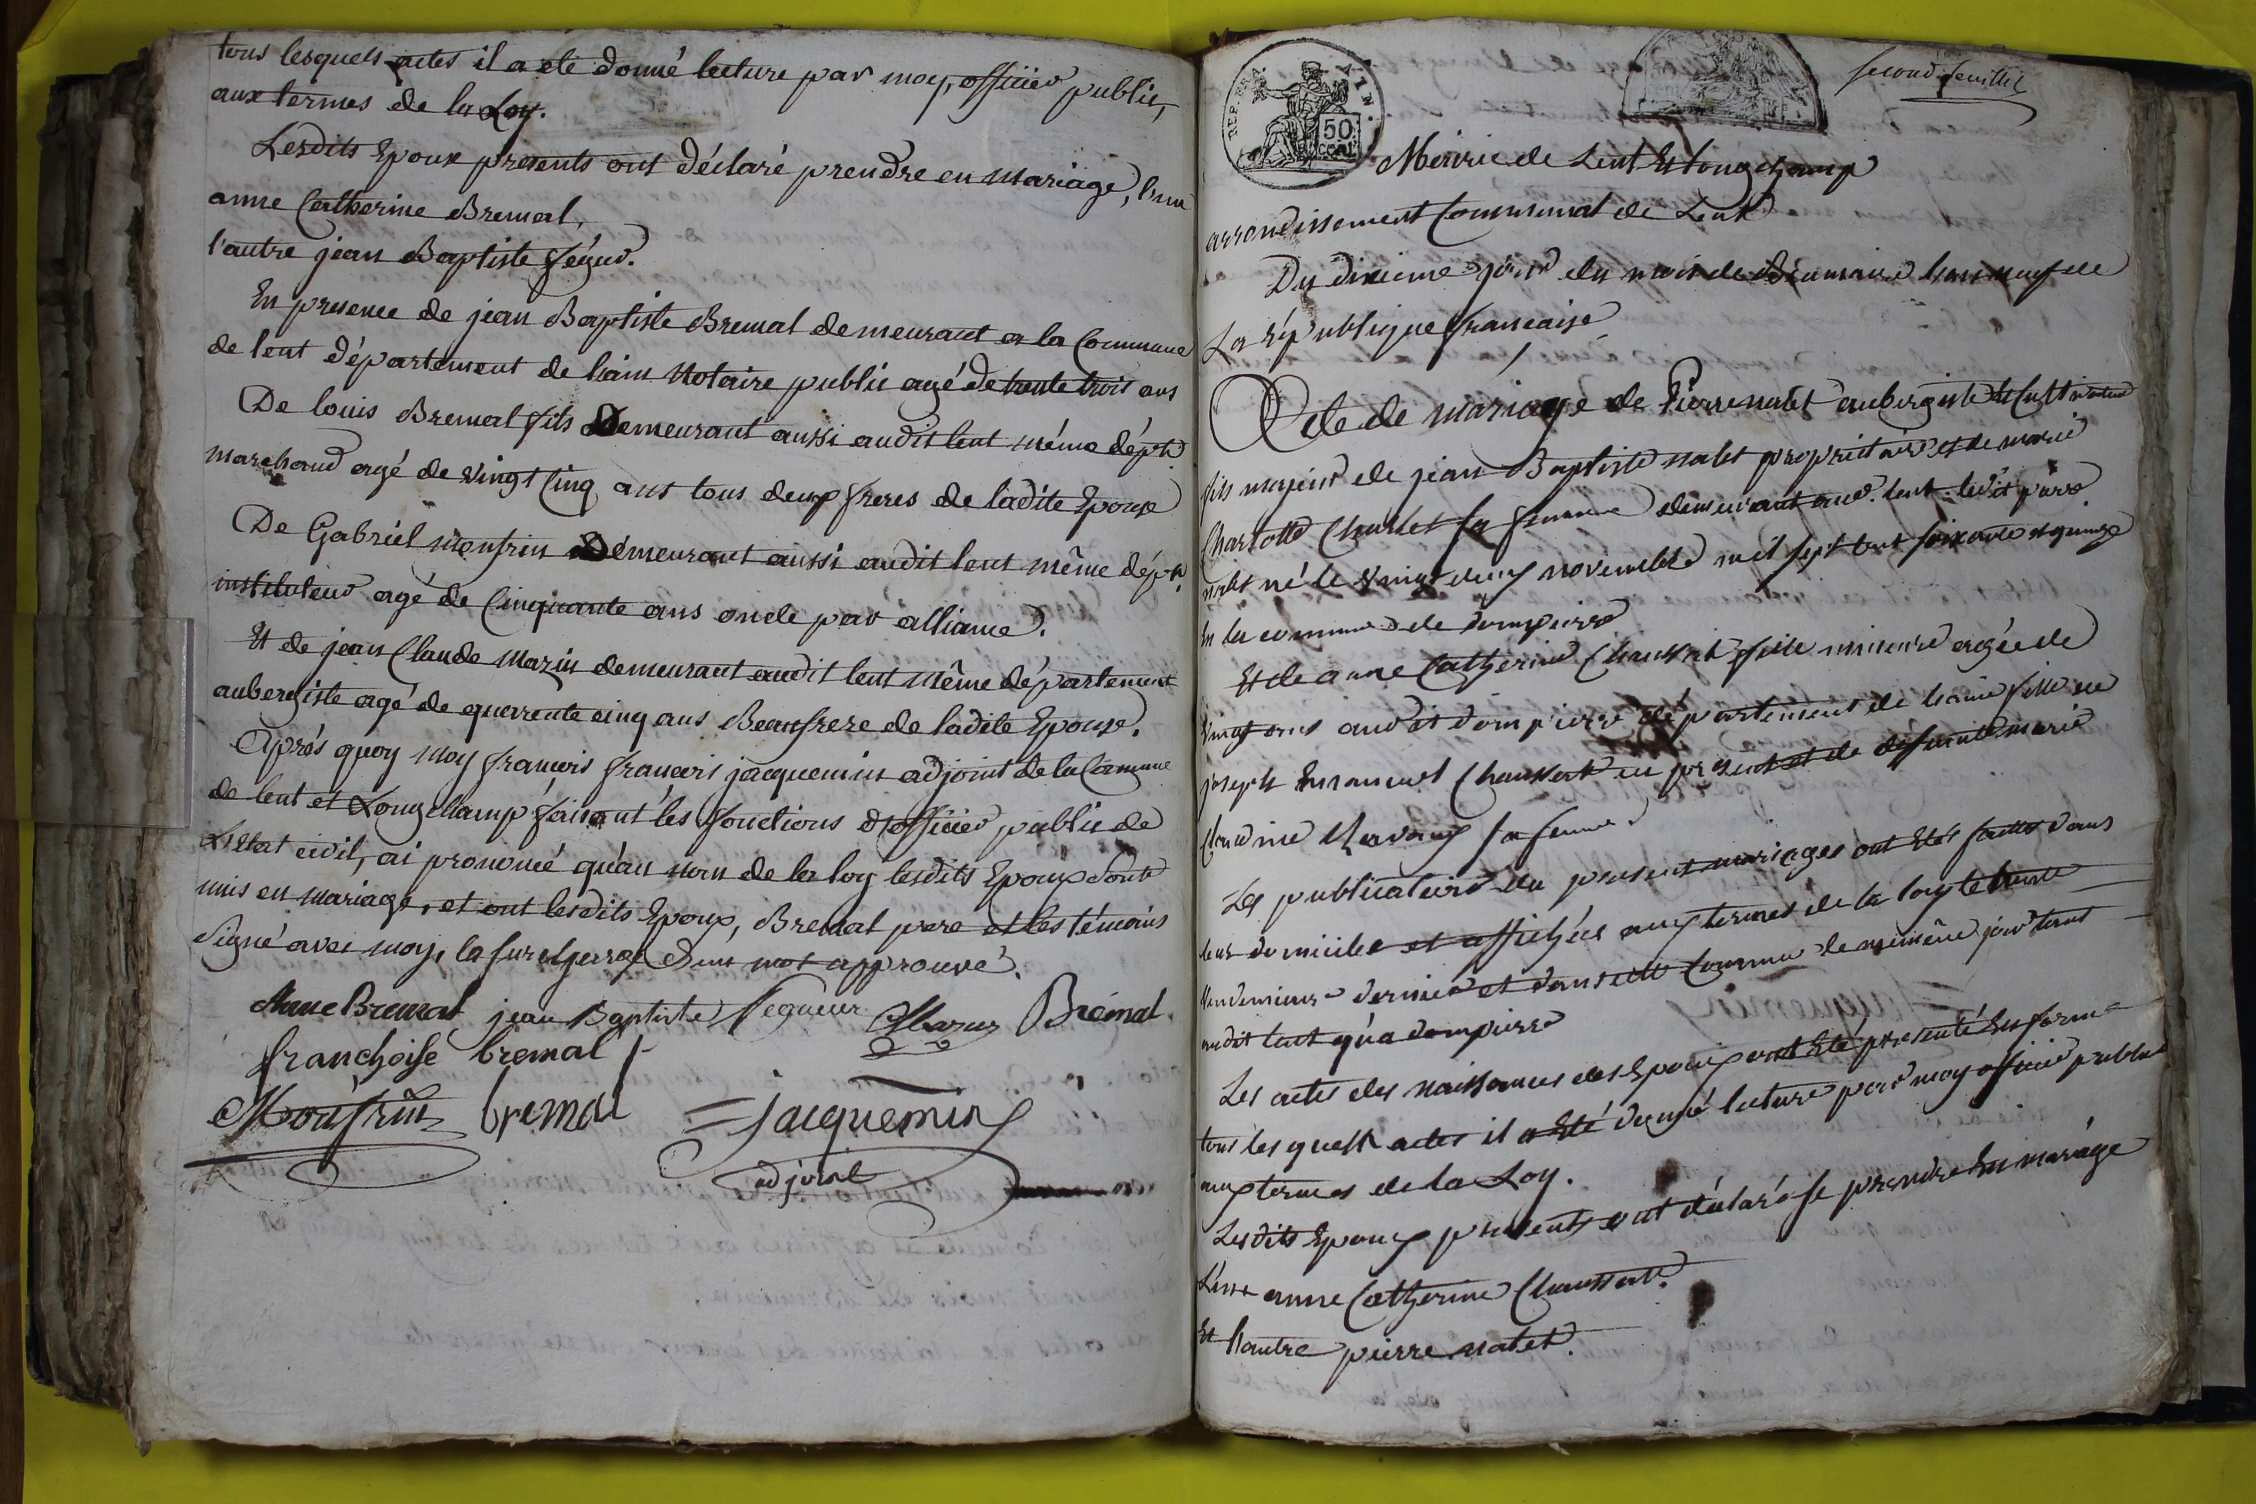 tous lesquels actes il a été donné lecture par moy, officier public,
aux termes de la Loy.
Lesdits Epoux presents ont déclaré prendre en mariage, l'un
anne Catherine Bremal,
l'autre jean Baptiste Ségur.
En presence de jean Baptiste Bremal demeurant a la Commune
de lent département de l'ain Notaire public agé de trente trois ans
De louis Bremal fils Demeurant aussi audit lent même dépt.
marchand agé de vingt Cinq ans tous deux freres de ladite Epouse
De Gabriel monfrin Démeurant aussi audit lent même dépt.
instituteur agé de Cinquante ans oncle par alliance.
Et de jean Claude Mazin demeurant audit lent même département
aubergiste agé de quarrente cinq ans Beaufrere de ladite Epouse.
Après quoy moy francois francois jacquemin adjoint de la Comune
de lent et Longchamp faisant les fonctions d'officier public de
L'Etat civil, ai prononcé qu'au nom de la loy lesdits Epoux sont
unis en mariage, et ont lesdits Epoux, Bremal pere et les témoins
signé avec moy, la surcharge d'un mot approuvé.
Anne Bremal jean Baptiste Segueur Bremal
franchoise bremal
Monfrin bremal jacquemin
adjoint
second feuillet
REP. FRA.
50
CONT.
Mairie de Lent Et longchamp
arrondissement Communal de Lent
Du dixieme jour du mois de Brumaire l'an neuf de
La république francaise
Acte de mariage de Pierre nalet aubergiste et Cultivateur
fils majeur de jean Baptiste nalet propriétaire et de marie
Charlotte Charlet sa femme demeurant aud. lent. ledit pierre
nalet né le vingt deux novembre mil sept cent soixante et quinze
En la commune de dompierre
Et de anne Catherine Chaussat fille mineure agée de
vingt ans audit dompierre département de l'ain fille de
joseph Emanuel Chaussat ici present et de deffunte marie
Claudine sa femme
Les publications du present mariages ont Etés faittes dans
leur domicile et affichées aux termes de la loy le trente
Vendemiaire dernier et dans cette Commune le meimême jour tant
audit lent qu'a dompierre
Les actes des naissances des Epoux ont Eté presenté En forme
tous les quels actes il a Eté donné lecture par moy officier public
aux termes de la Loy.
Lesdits Epoux presents ont déclaré se prendre En mariage
L'un anne Catherine Chaussat.
Et l'autre pierre nalet.